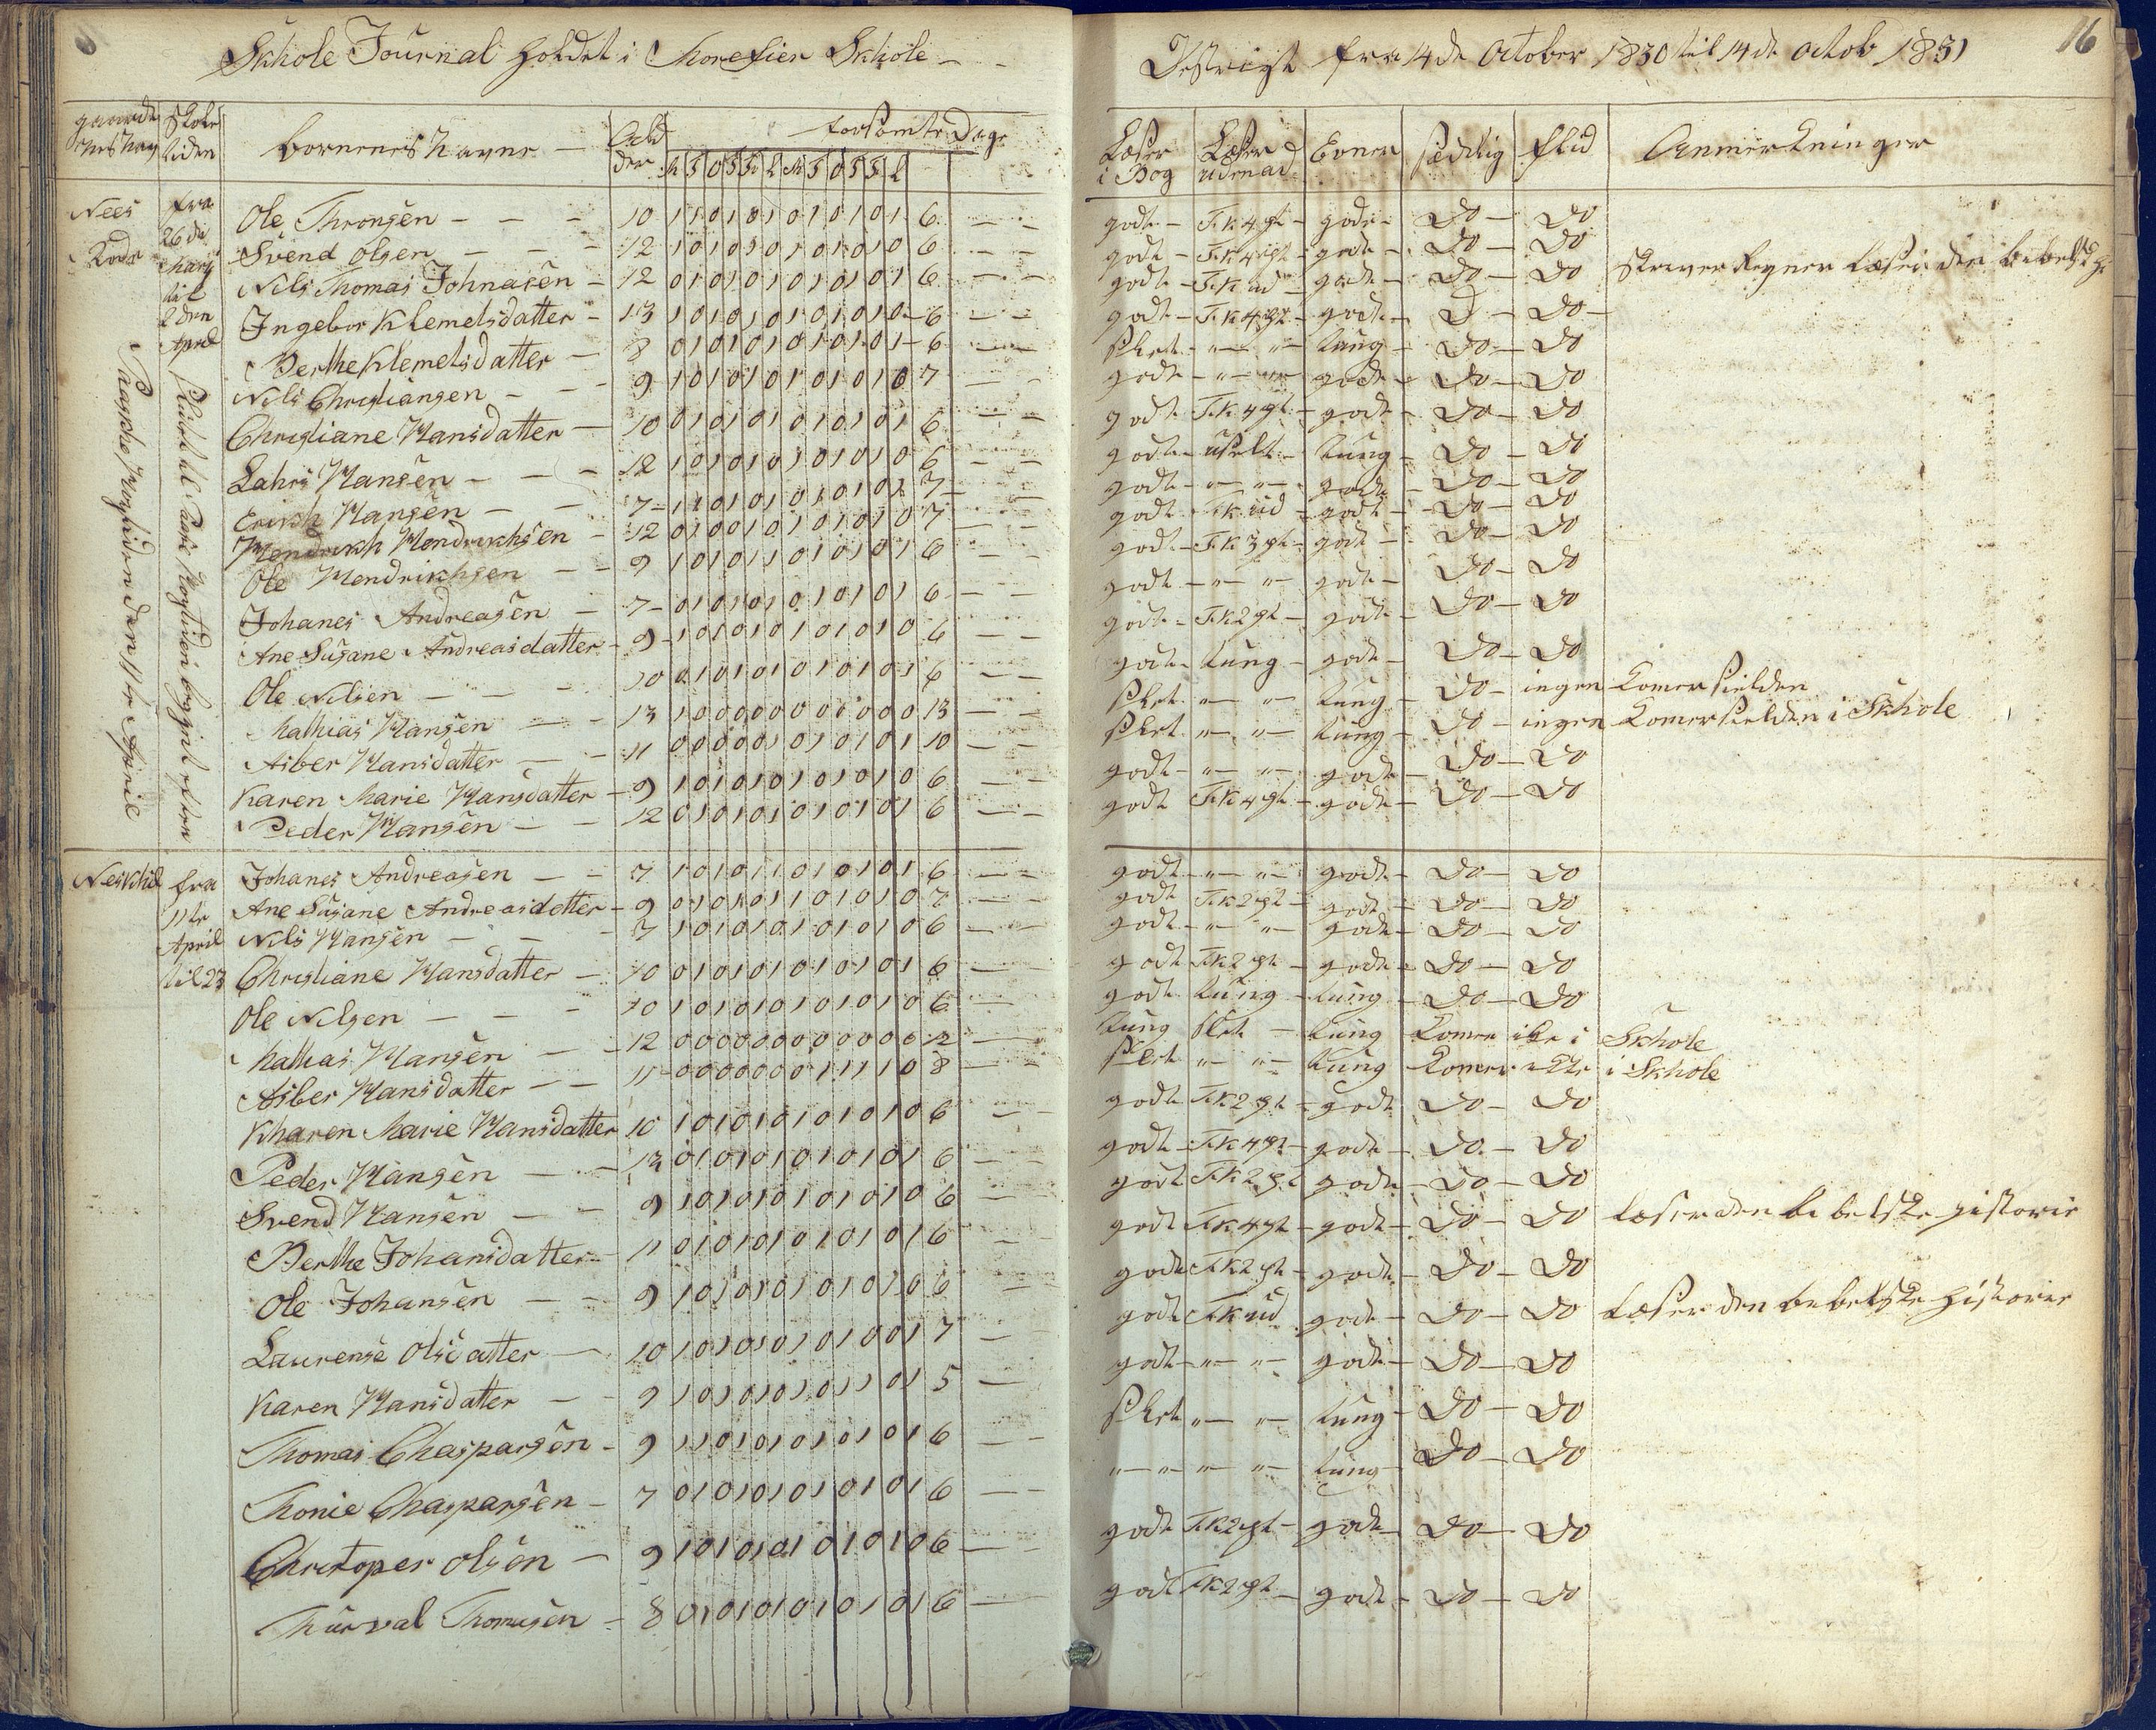 Skhole Journal holdet i Morefier Skhole
Destrigt fra 14de October 1830 til 14de octob 1831
16
gaardenes Navn Skole tiden Børnenes Navne Alder forsømte Dage Læser i Bog Læser udenad Evner sædelig flid Anmerkninger
M T O T F L M T O T F L
Nees fra 26de Marts til 2den April
Paaske Høytiden den 11te Aprie
Ole Thronsen 10 1 1 0 1 0 1 0 1 0 1 0 1 6 godt F.K 4 pt godt Do Do
Svend Olsen 12 1 0 1 0 1 0 1 0 1 0 1 0 6 godt F.K 4 pt godt Do Do
Nils Thomas Johnasen 12 0 1 0 1 0 1 0 1 0 1 0 1 6 godt F.K ud godt Do Do Skriver Regner Læser i den bibelske
Ingebor Klemetsdatter 13 1 0 1 0 1 0 1 0 1 0 1 0 6 godt F.K 4 pt godt D Do
Berthe Klemetsdatter 8 0 1 0 1 0 1 0 1 0 1 0 1 6 slet " " tung Do Do
Nils Christiansen 9 1 0 1 0 1 0 1 0 1 0 1 0 7 godt " " godt Do Do
Christiane Hansdatter 10 0 1 0 1 0 1 0 1 0 1 0 1 6 godt F.K 4 pt godt Do Do
Lahrs Hansen 12 1 0 1 0 1 0 1 0 1 0 1 0 6 godt uselt tung Do Do
Erikh Hansen 7 1 1 0 1 0 1 0 1 0 1 0 1 7 godt " " godt Do Do
Hendrikh Hendrikhsen 12 0 1 0 0 1 0 1 0 1 0 1 0 7 godt F.K ud godt Do Do
Ole Hendrikhsen 9 1 0 1 0 1 1 0 1 0 1 0 1 6 godt F.K 3 pt godt Do Do
Johanes Andreasen 7 0 1 0 1 0 1 0 1 0 1 0 1 6 godt " " godt Do Do
Ane Susane Andreasdatter 9 1 0 1 0 1 0 1 0 1 0 1 0 6 godt F.K 2 pt godt Do Do
Ole Nilsen 10 0 1 0 1 0 1 0 1 0 1 0 1 6 godt tung godt Do Do
Mathias Hansen 13 1 0 0 0 0 0 0 0 0 0 0 0 13 slet " " tung Do ingen Komer sielden
Asber Hansdatter 11 0 0 0 0 0 1 0 1 0 1 0 1 10 slet " " tung Do ingen Komer sielden i Skhole
Karen Marie Hansdatter 9 1 0 1 0 1 0 1 0 1 0 1 0 6 godt " " godt Do Do
Peder Hansen 12 0 1 0 1 0 1 0 1 0 1 0 1 6 godt F.K 4 pt godt Do Do
Neskhil fra 11te April til 23
Johanes Andreasen 7 1 0 1 0 1 1 0 1 0 1 0 1 6 godt " " godt Do Do
Ane Susane Andreasdatter 9 0 1 0 1 0 1 1 0 1 0 1 0 7 godt F.K 2 pt godt Do Do
Nils Hansen 7 1 0 1 0 1 0 1 0 1 0 1 0 6 godt " " godt Do Do
Christiane Hansdatter 10 0 1 0 1 0 1 0 1 0 1 0 1 6 godt F.K 2 pt godt Do Do
Ole Nilsen 10 1 0 1 0 1 0 1 0 1 0 1 0 6 godt tung tung Do Do
Mathias Hansen 12 0 0 0 0 0 0 0 0 0 0 0 0 12 tung slet tung Komer ike i Skhole
Asber Hansdatter 11 0 0 0 0 0 0 0 1 1 1 1 0 8 slet " " tung Komer ike i Skhole
Kharen Marie Hansdatter 10 1 0 1 0 1 0 1 0 1 0 1 0 6 godt F.K 2 pt godt Do Do
Peder Hansen 12 0 1 0 1 0 1 0 1 0 1 0 1 6 godt F.K 4 pt godt Do Do
Svend Hansen 9 1 0 1 0 1 0 1 0 1 0 1 0 6 godt F.K 2 pt godt Do Do
Berthe Johansdatter 11 0 1 0 1 0 1 0 1 0 1 0 1 6 godt F.K 4 pt godt Do Do Læser den bibelske historie
Ole Johansen 9 1 0 1 0 1 0 1 0 1 0 1 0 6 godt F.K 2 pt godt Do Do
Laurense Olsdatter 10 1 0 1 0 1 0 1 0 1 0 0 1 7 godt F.K ud godt Do Do Læser den bibelske historie
Karen Hansdatter 9 1 0 1 0 1 0 1 0 1 1 0 1 5 godt " " godt Do Do
Thomas Chaspersen 9 1 1 0 1 0 1 0 1 0 1 0 1 6 slet " " tung Do Do
Thonie Chaspersen 7 0 1 0 1 0 1 0 1 0 1 0 1 6 " " " " tung Do Do
Christoper Olsen 9 1 0 1 0 1 0 1 0 1 0 1 0 6 godt F.K 2 pt godt Do Do
Thurval Thomasen 8 0 1 0 1 0 1 0 1 0 1 0 1 6 godt F.K 2 pt godt Do Do